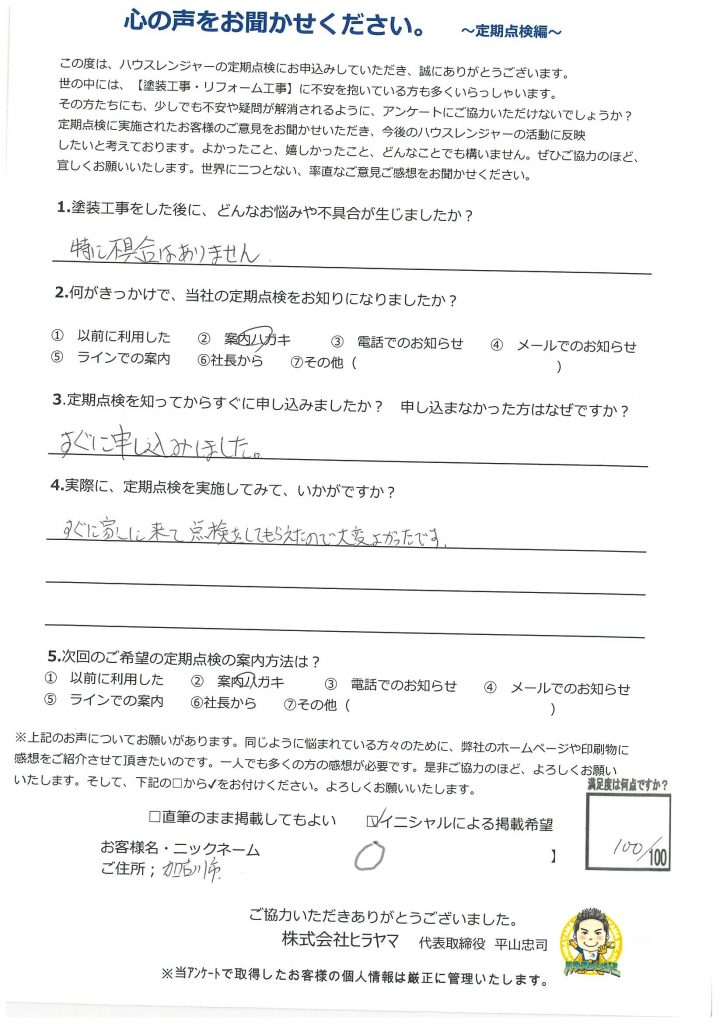 心の声をお聞かせください。 ～定期点検編～
この度は、ハウスレンジャーの定期点検にお申込みしていただき、誠にありがとうございます。
世の中には、【塗装工事・リフォーム工事】に不安を抱いている方も多くいらっしゃいます。
その方たちにも、少しでも不安や疑問が解消されるように、アンケートにご協力いただけないでしょうか？
定期点検に実施されたお客様のご意見をお聞かせいただき、今後のハウスレンジャーの活動に反映
したいと考えております。よかったこと、嬉しかったこと、どんなことでも構いません。ぜひご協力のほど、
宜しくお願いいたします。世界に二つとない、率直なご意見ご感想をお聞かせください。
1.塗装工事をした後に、どんなお悩みや不具合が生じましたか？
特に不具合はありません
2.何がきっかけで、当社の定期点検をお知りになりましたか？
① 以前に利用した ② 案内ハガキ ③ 電話でのお知らせ ④ メールでのお知らせ
⑤ ラインでの案内 ⑥社長から ⑦その他（ ）
3.定期点検を知ってからすぐに申し込みましたか？ 申し込まなかった方はなぜですか？
すぐに申し込みました。
4.実際に、定期点検を実施してみて、いかがですか？
すぐに家に来て点検をしてもらえたので大変よかったです。
5.次回のご希望の定期点検の案内方法は？
① 以前に利用した ② 案内ハガキ ③ 電話でのお知らせ ④ メールでのお知らせ
⑤ ラインでの案内 ⑥社長から ⑦その他（ ）
※上記のお声についてお願いがあります。同じように悩まれている方々のために、弊社のホームページや印刷物に
感想をご紹介させて頂きたいのです。一人でも多くの方の感想が必要です。是非ご協力のほど、よろしくお願い
いたします。そして、下記の□から✓をお付けください。よろしくお願いいたします。
満足度は何点ですか？
□直筆のまま掲載してもよい ☑イニシャルによる掲載希望
100/100
お客様名・ニックネーム 〇 】
ご住所； 加古川市
ご協力いただきありがとうございました。
株式会社ヒラヤマ 代表取締役 平山忠司
※当アンケートで取得したお客様の個人情報は厳正に管理いたします。